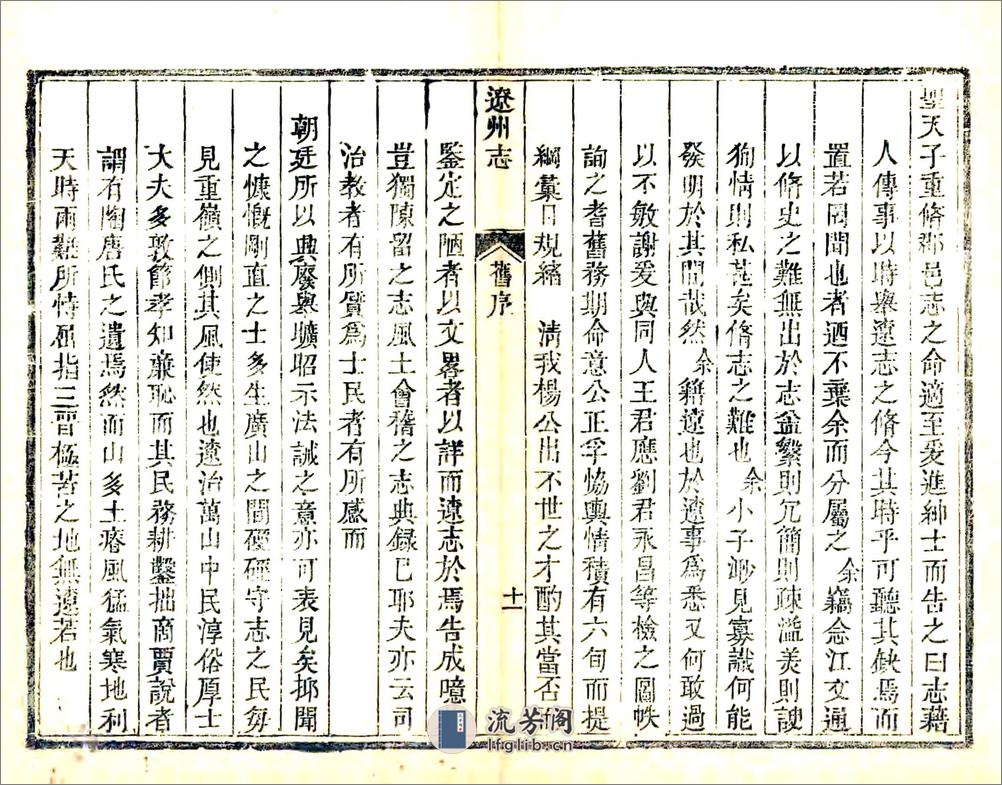 聖天子重脩郡邑志之命適至爰進紳士而告之曰志藉
人傳事以時舉遼志之脩今其時乎可聽其缺焉而
置若罔聞也者迺不棄余而分屬之余竊念江文通
以脩史之難無出於志盆繁則冗簡則疎濫美則諛
狥情則私甚矣脩志之難也余小子渺見寡識何能
發明於其間哉然余籍遼也於遼事為悉又何敢過
以不敏謝爰與同人王君應劉君永昌等檢之圖帙
詢之耆舊務期命意公正孚恊輿情積有六旬而提
綱彙目規縮 清我楊公出不世之才酌其當否
遼州志
舊序
十一
鑒定之陋者以文畧者以詳而遼志於焉告成噫
豈獨陳留之志風土會稽之志典録已耶夫亦云司
治教者有所質為士民者有所感而
朝廷所以典廢舉曠昭示法誡之意亦可表見矣抑聞
之慷慨剛直之士多生廣山之間硜硜守志之民每
見重嶺之側其風使然也遼治萬山中民淳俗厚士
大夫多敦節孝知亷恥而其民務耕鑿拙商賈說者
謂有陶唐氏之遺焉然而山多土瘠風猛氣寒地利
天時兩難所恃屈指三晋極苦之地無遼若也
流芳閣
lfglib.cn